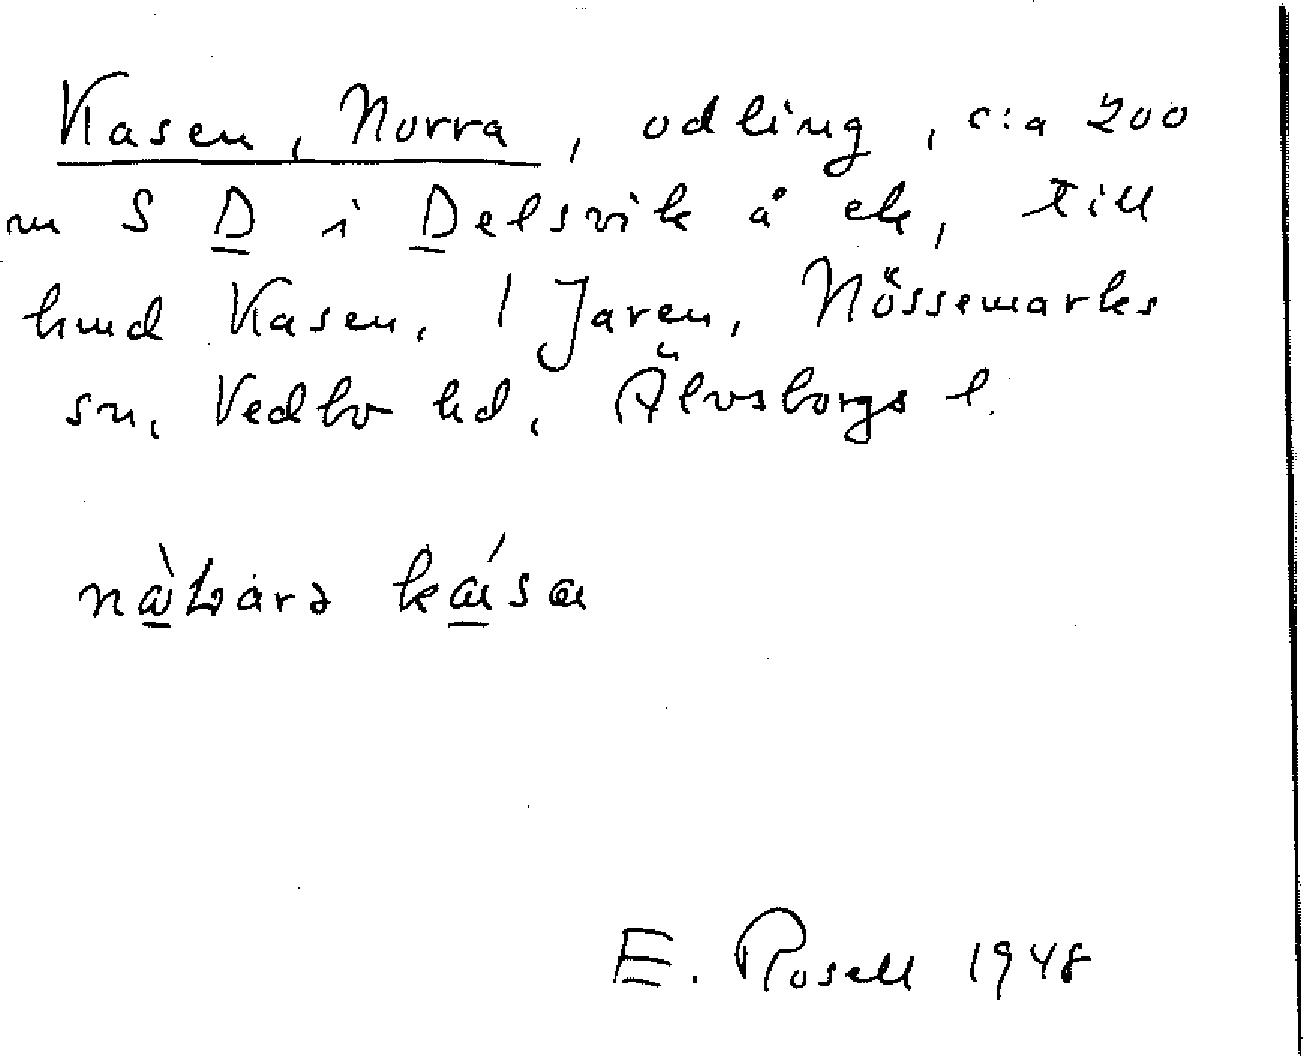 Kasen, Norra, odling, c:a 200
m S D i Delsvik å ek, till
hmd Kasen, 1 Jaren, Nössemarks
sn, Vedbo hd, Älvsborgs l.
kása
E. Rosell 1948